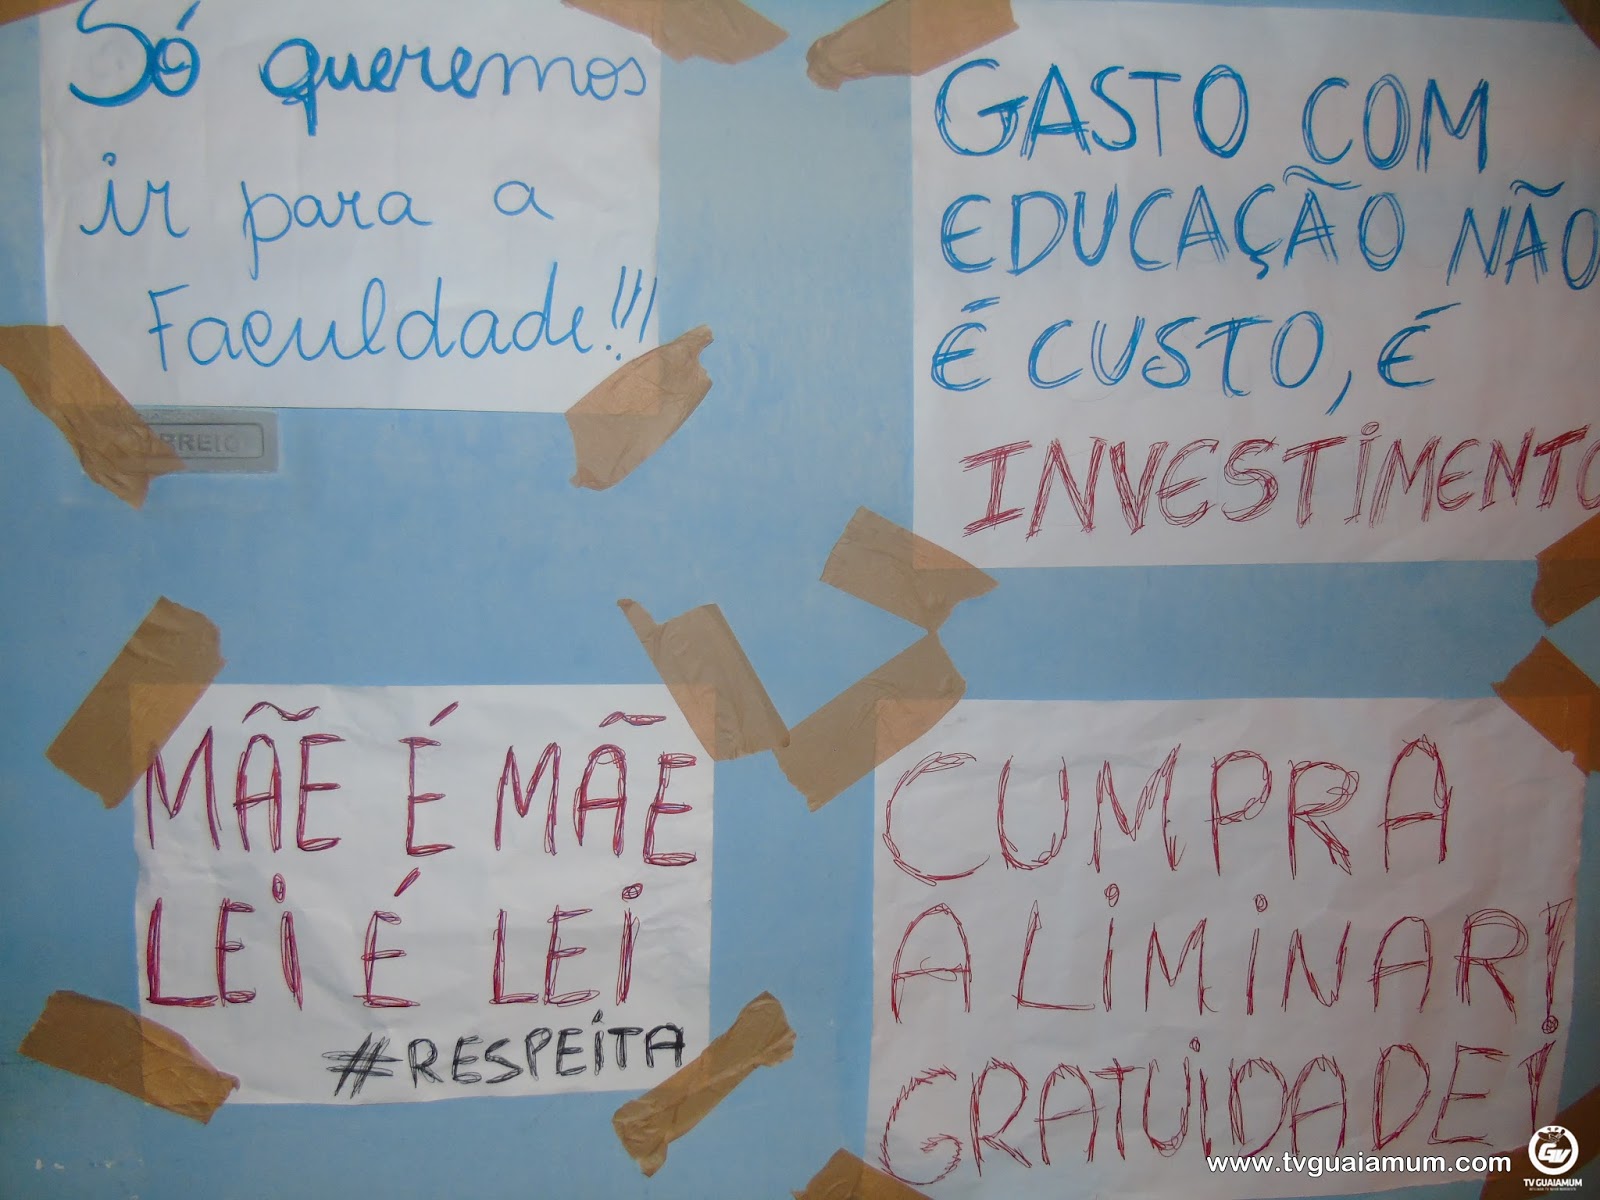 Só queremos
ir para a
Faculdade!!!
GASTO COM
EDUCAÇÃO NÃO
É CUSTO, É
INVESTIMENTO
MÃE É MÃE
LEI É LEI
#RESPEITA
CUMPRA
A LIMINAR!
GRATUIDADE!
www.tvguaiamum.com
TV GUAIAMUM